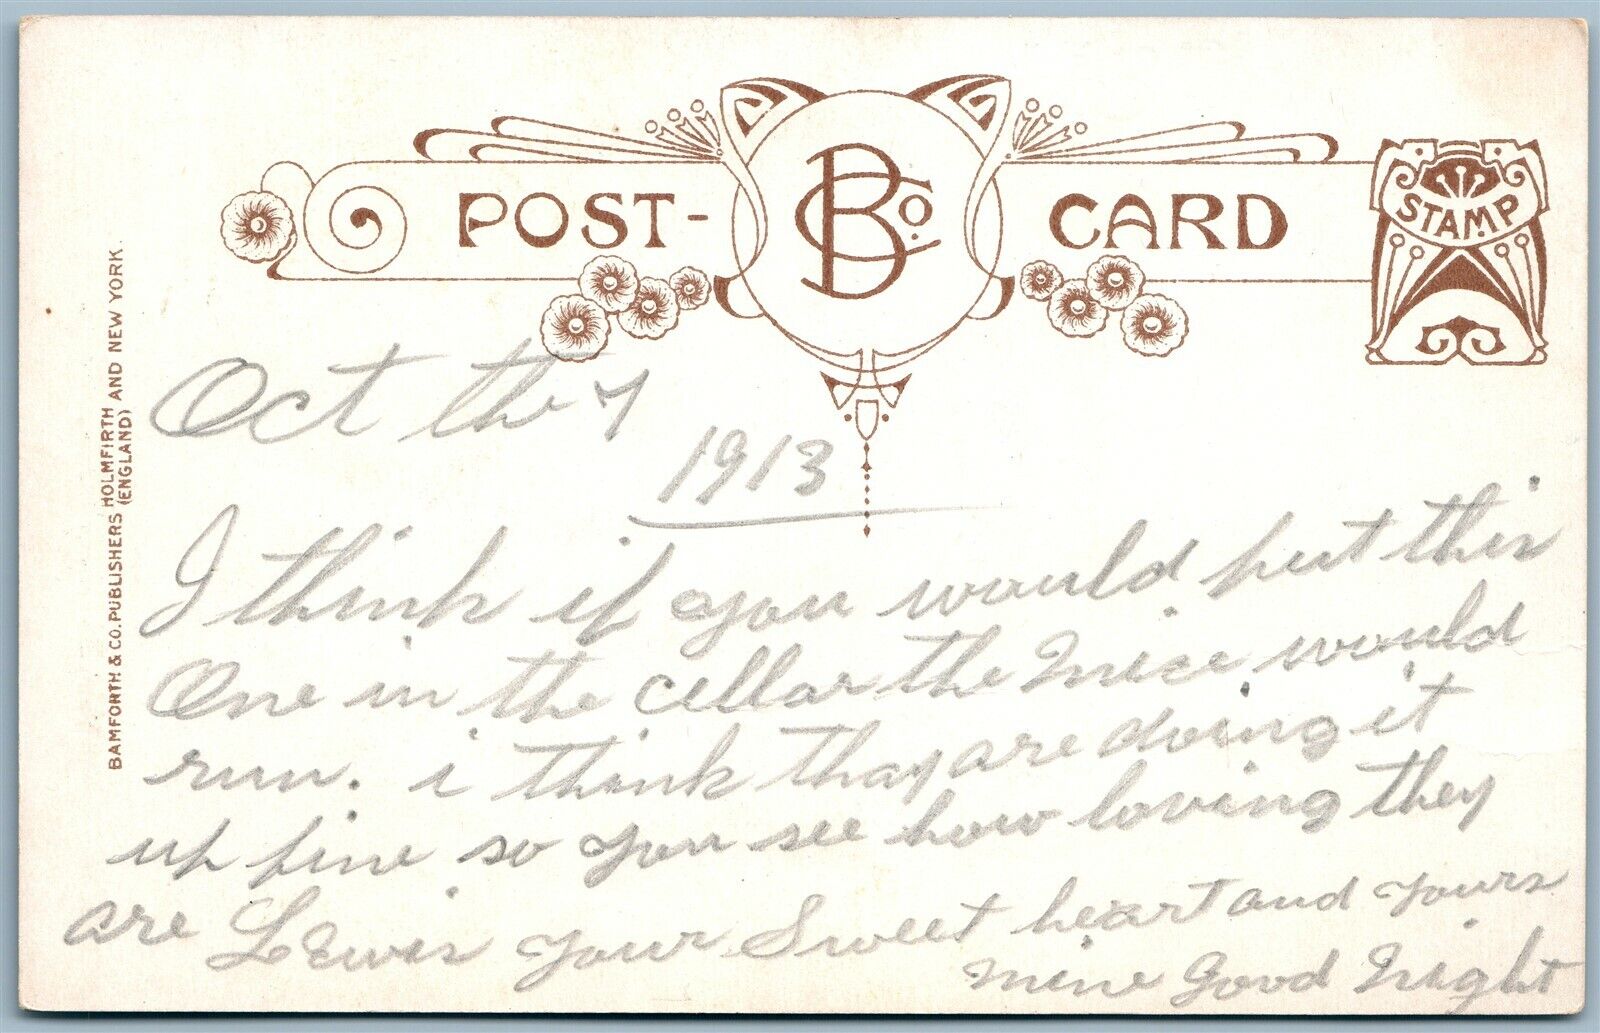 POST-
BCo.
CARD
STAMP
BAMFORTH & CO. PUBLISHERS HOLMFIRTH (ENGLAND) AND NEW YORK.
Oct the 7
1913
I think if you would put this
One in the cellar the mice would
run. i think thay are doing it
up fine so you see how loving they
are LEwis your Sweet heart and yours
mine Good Night